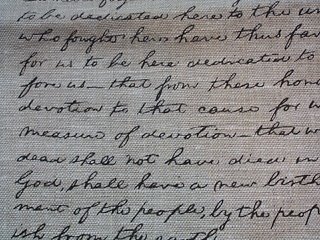 to be dedicated here to the un
who fought here have thus far
for us to be here dedicated to
fore us — that from these hono
devotion to that cause for w
measure of devotion — that w
dead shall not have died in
God, shall have a new birth
ment of the people, by the peop
ish from the earth.